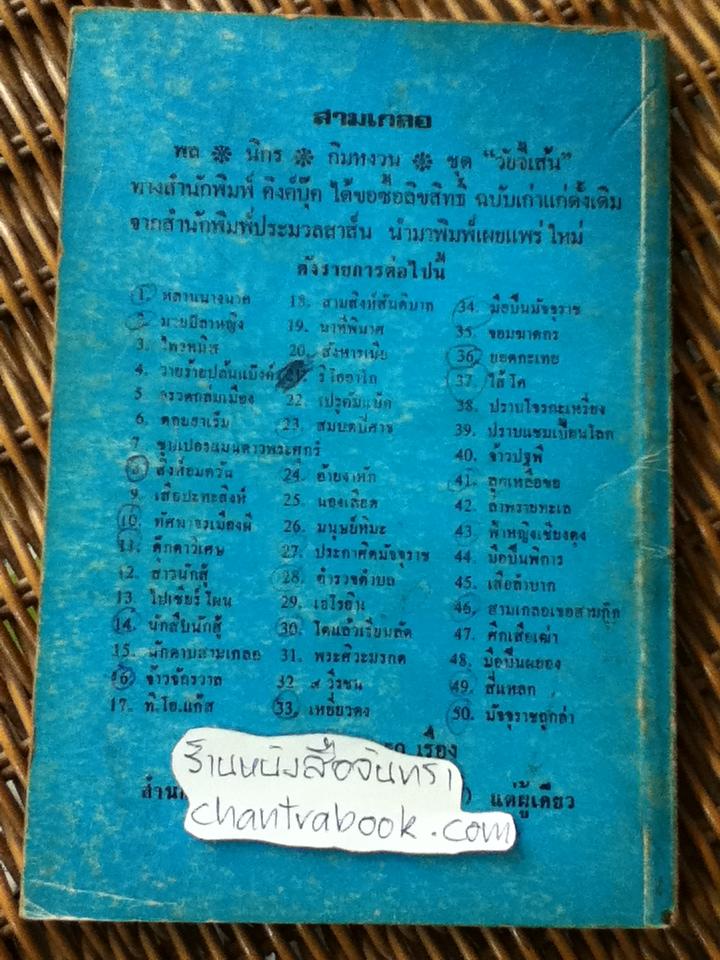 สามเกลอ
พล ❋ นิกร ❋ กิมหงวน ❋ ชุด "วัยจี๊เส้น"
ทางสำนักพิมพ์ คิงค์บุ๊ค ได้ขอซื้อลิขสิทธิ์ ฉบับเก่าแก่ดั้งเดิม
จากสำนักพิมพ์ประมวลสาส์น นำมาพิมพ์เผยแพร่ ใหม่
ดังรายการต่อไปนี้
1. หลานนางนาค
2. มายปีลาหญิง
3. ไพรพนิส
4. วายร้ายปล้นแบ๊งค์
5. จรวดถล่มเมือง
6. ดอยยาเร็ม
7. ซุปเปอร์แมนดาวพระศุกร์
8. สิงห์อมควัน
9. เสือปะทะสิงห์
10. ทัศนาจรเมืองผี
11. ตุ๊กตาวิเศษ
12. สาวนักสู้
13. โปเซียร์โผน
14. นักสืบนักสู้
15. นักดาบสามเกลอ
16. จ้าวจักรวาล
17. ที.โอ.แก๊ส
18. สามสิงห์สันติบาล
19. นาทีพิฆาต
20. สังหารเนีย
21. ริโออาโก
22. เปรูคัมแบ๊ค
23. สมบัติปีศาจ
24. อ้ายงาหัก
25. นองเลือด
26. มนุษย์หิมะ
27. ประกาศิตมัจจุราช
28. ตำรวจตำบล
29. เฮโรอีน
30. โดดแล้วเรียนลัด
31. พระศิวะมรกต
32 ๙ วีรชน
33. เหยี่ยวดง
34. มือปืนมัจจุราช
35. จอมฆาตกร
36. ยอดกะเทย
37. ไส้โค
38. ปราบโจรกะเหรี่ยง
39. ปราบแชมเปี้ยนโลก
40. จ้าวปฐพี
41. ลูกเหลือขอ
42. ล่าพรายทะเล
43. ฟ้าหญิงเชียงตุง
44. มือปืนพิการ
45. เสือลำบาก
46. สามเกลอเจอสามกุ๊ก
47. ศึกเสือเฒ่า
48. มือปืนผยอง
49. สี่แหลก
50. มัจจุราชถูกล่า
เรื่อง
แต่ผู้เดียว
ร้านหนังสือจันทรา
chantrabook.com